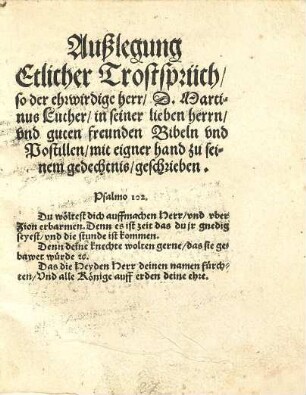 Außlegung
Etlicher Trostsprüch/
so der ehrwirdige herr/ D. Marti-
nus Luther/ in seiner lieben herrn/
vnd guten freunden Bibeln vnd
Postillen/ mit eigner hand zu sei-
nem gedechtnis/ geschrieben.
Psalmo 102.
Du wöltest dich auffmachen Herr/ vnd vber
Zion erbarmen. Denn es ist zeit das du jr gnedig
seyest/ vnd die stunde ist kommen.
Denn deine knechte wolten gerne/ das sie ge-
bawet würde ꝛc.
Das die Heyden Herr deinen namen fürch-
ten/ Vnd alle Könige auff erden deine ehre.